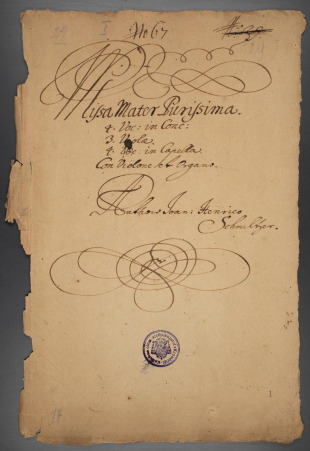 No 67
Missa Mater Purissima.
4. Voc: in Conc:
3. Viola
4. Voc: in Capella
Con Violone et Organo.
Authore Joan: Henrico
Schmeltzer.